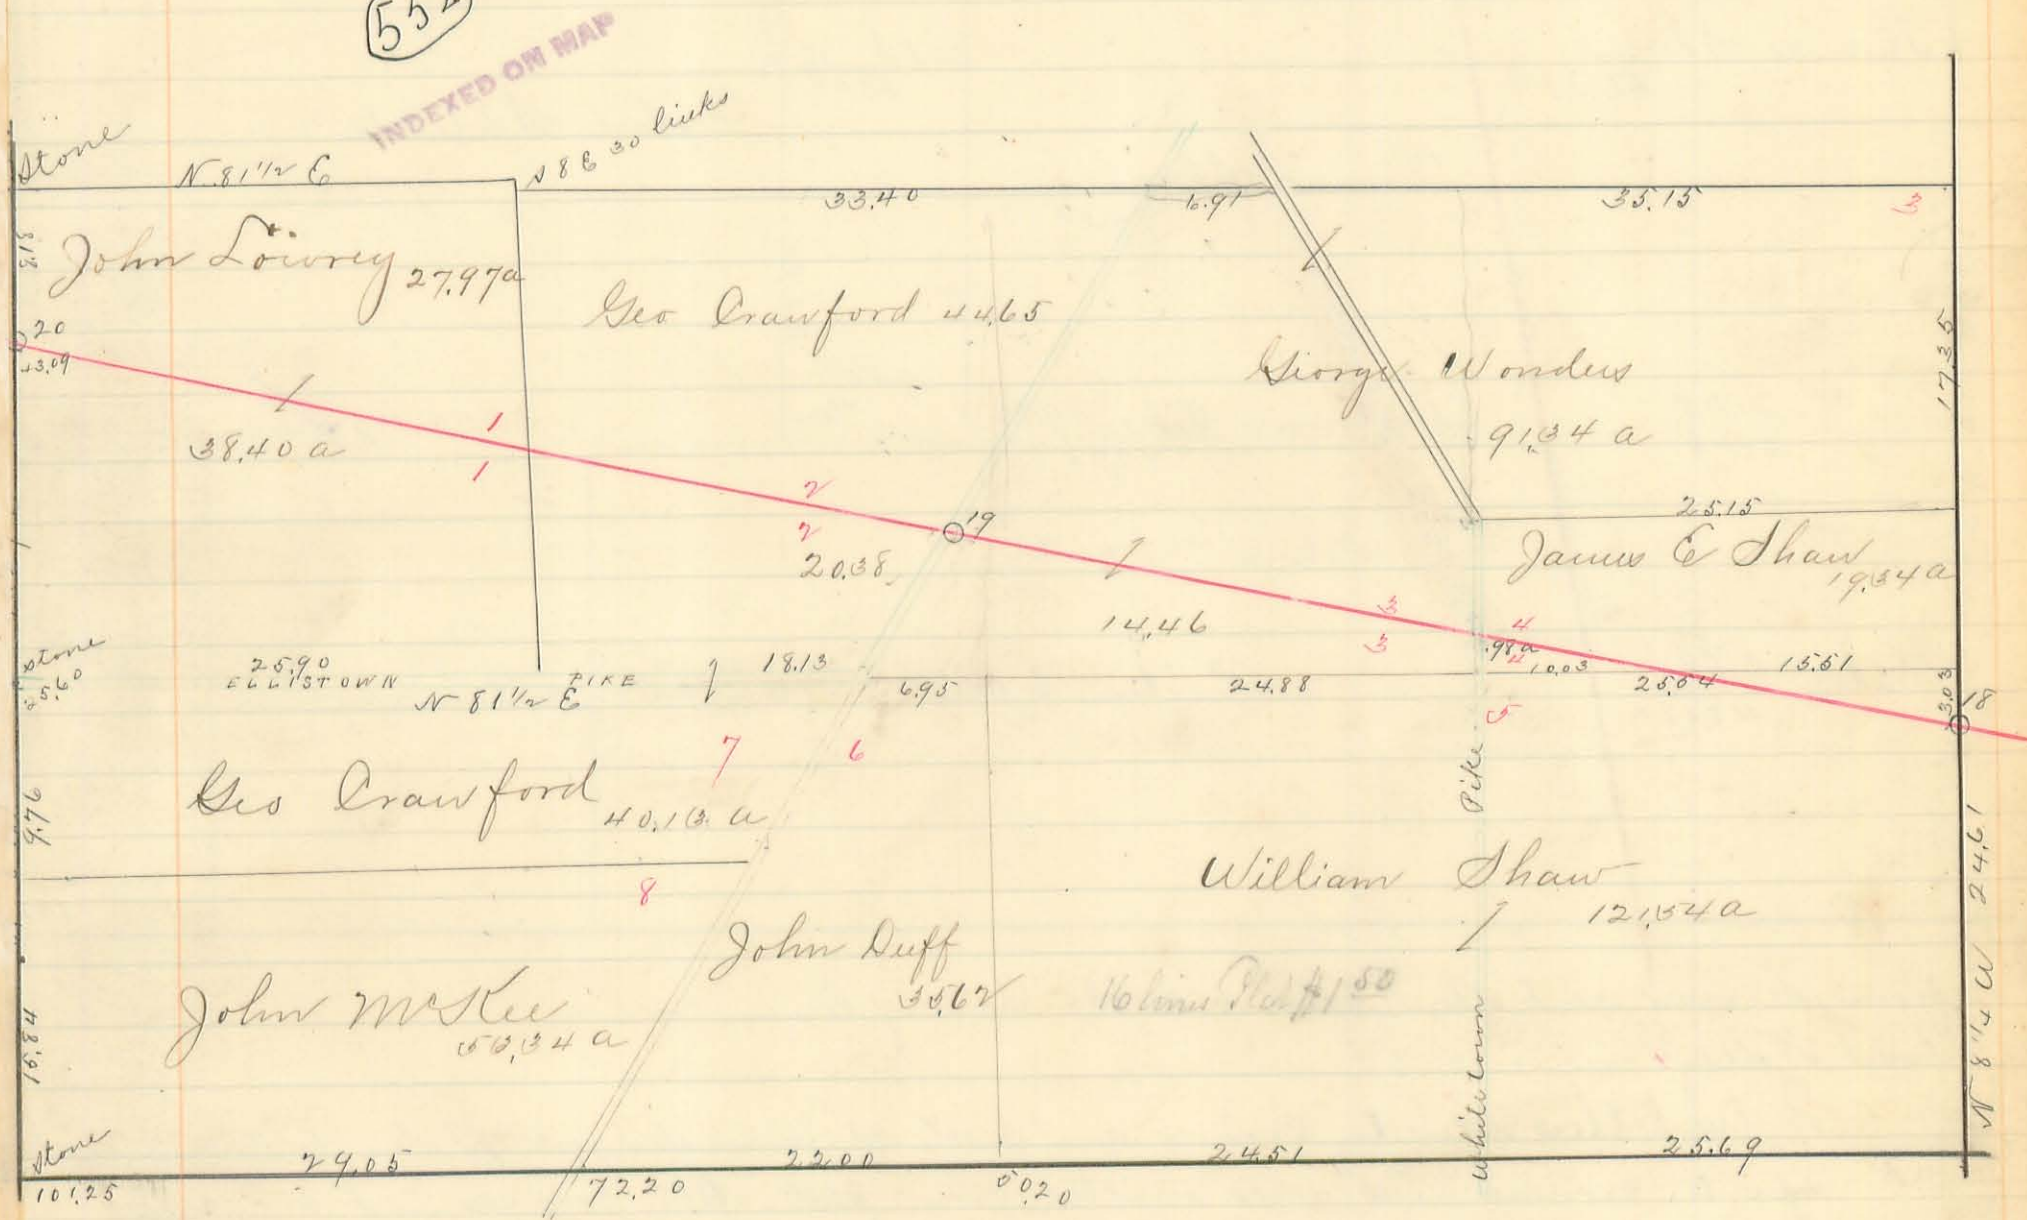 INDEXED ON MAP
Stone
N. 81 1/2 E
30 links
33.40
6.91
35.15
3
8.13
John Lowrey 27.97a
Geo Crawford 44.65
20
George Wonders
91.34 a
17.35
38.40 a
1
1
2
2
19
20.38
25.15
James E Shaw
19.34 a
14.46
3
3
4
.98a
4
Stone
25.60
25.90
ELLISTOWN PIKE
N 81 1/2 E
18.13
6.95
24.88
10.03
25.54
15.51
3.03
18
5
7
6
Geo Crawford
40.13 a
9.76
8
Whitetown Pike
William Shaw
121.54 a
N 8 1/4 W 24.61
John Duff
35.62
John McKee
53.34 a
15.84
Stone
29.05
22.00
24.51
25.69
101.25
72.20
50.20